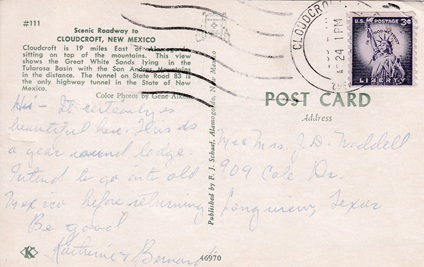 #111
Scenic Roadway to
CLOUDCROFT, NEW MEXICO
Cloudcroft is 19 miles East of Alamogordo,
sitting on top of the mountains. This view
shows the Great White Sands lying in the
Tularosa Basin with the San Andres Mountains
in the distance. The tunnel on State Road 83 is
the only highway tunnel in the State of New
Mexico.
Color Photos by Gene
Hi - It certainly is
beautiful here.
a year round lodge.
Intend to go into old
Mexico before returning
Be good
Katherine & Bernard
K
46970
Published by P. J. Schaaf, Alamogordo, New Mexico
CLOUDCROFT
24
1 PM
U.S. POSTAGE
3¢
LIBERTY
POST CARD
Address
Mrs. J. D. Waddell
909 Cole Dr.
Longview, Texas